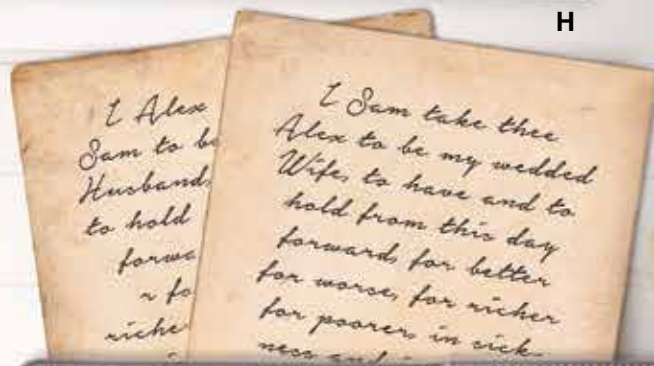 H
I Alex
Sam to be
Husband,
to hold
forwa
r fo
riche
I Sam take thee
Alex to be my wedded
Wife, to have and to
hold from this day
forward, for better
for worse, for richer
for poorer, in sick-
ness and i